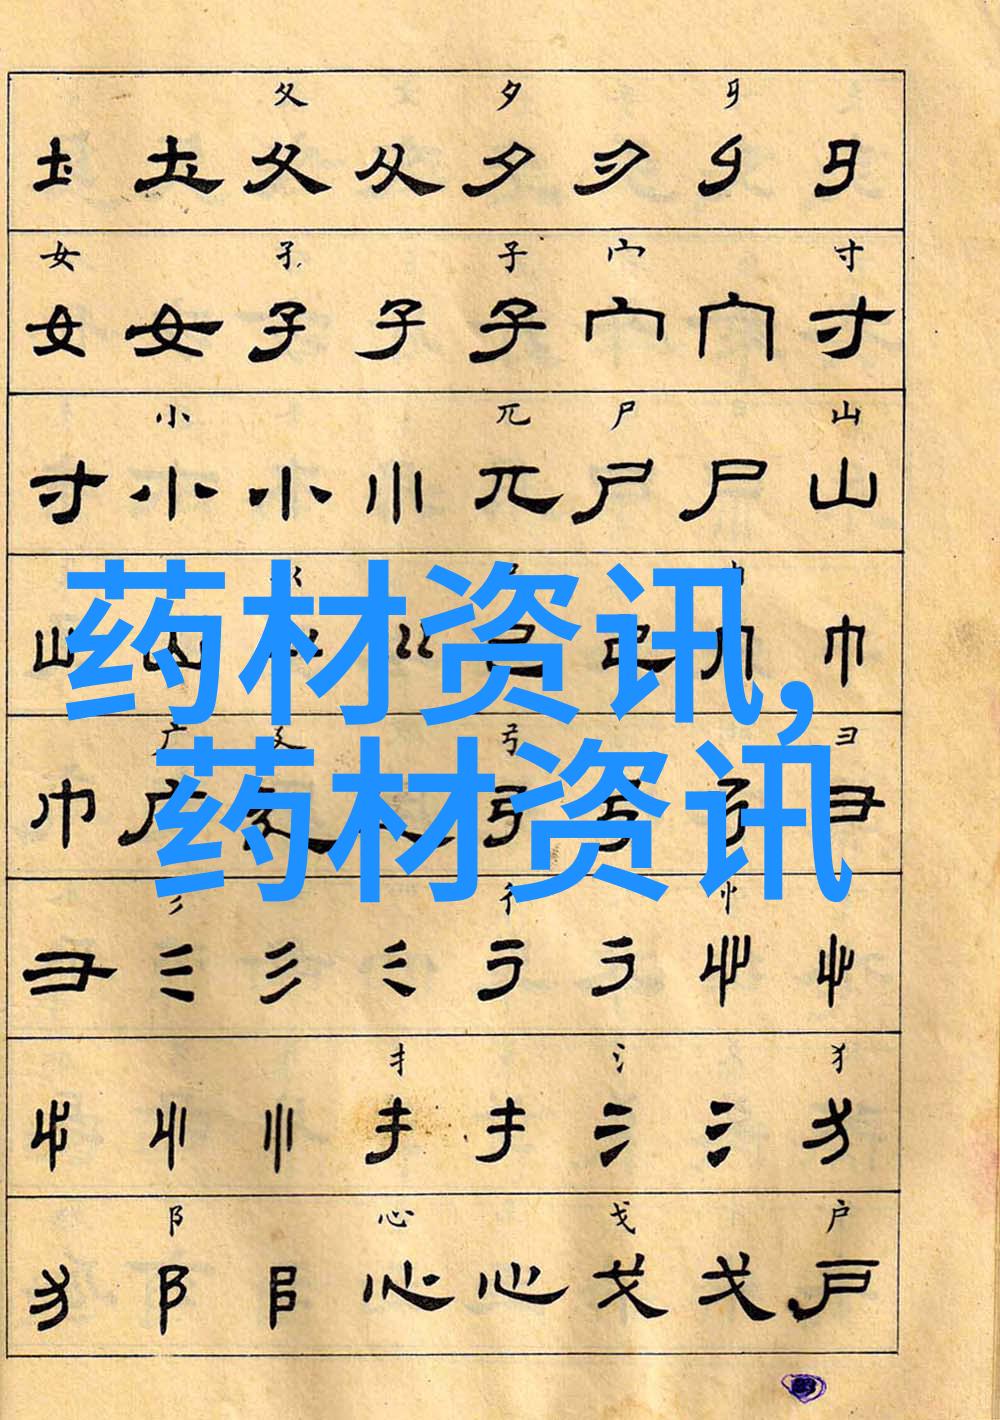 夂 夕
土 土 夂 夂 夕 夕
女 孑 子 宀 寸
女 女 孑 孑 子 宀 宀 寸
小 兀 尸 山
寸 小 小 小 兀 尸 尸 山
药材资讯,
山 巾
巾 广 弓 弓 彐
药材资讯
彡 彳
彐 彡 彡 彡 彳 彳
扌 氵 犭
扌 扌 氵 氵 犭
阝 心 戈 户
犭 阝 阝 心 心 戈 戈 户